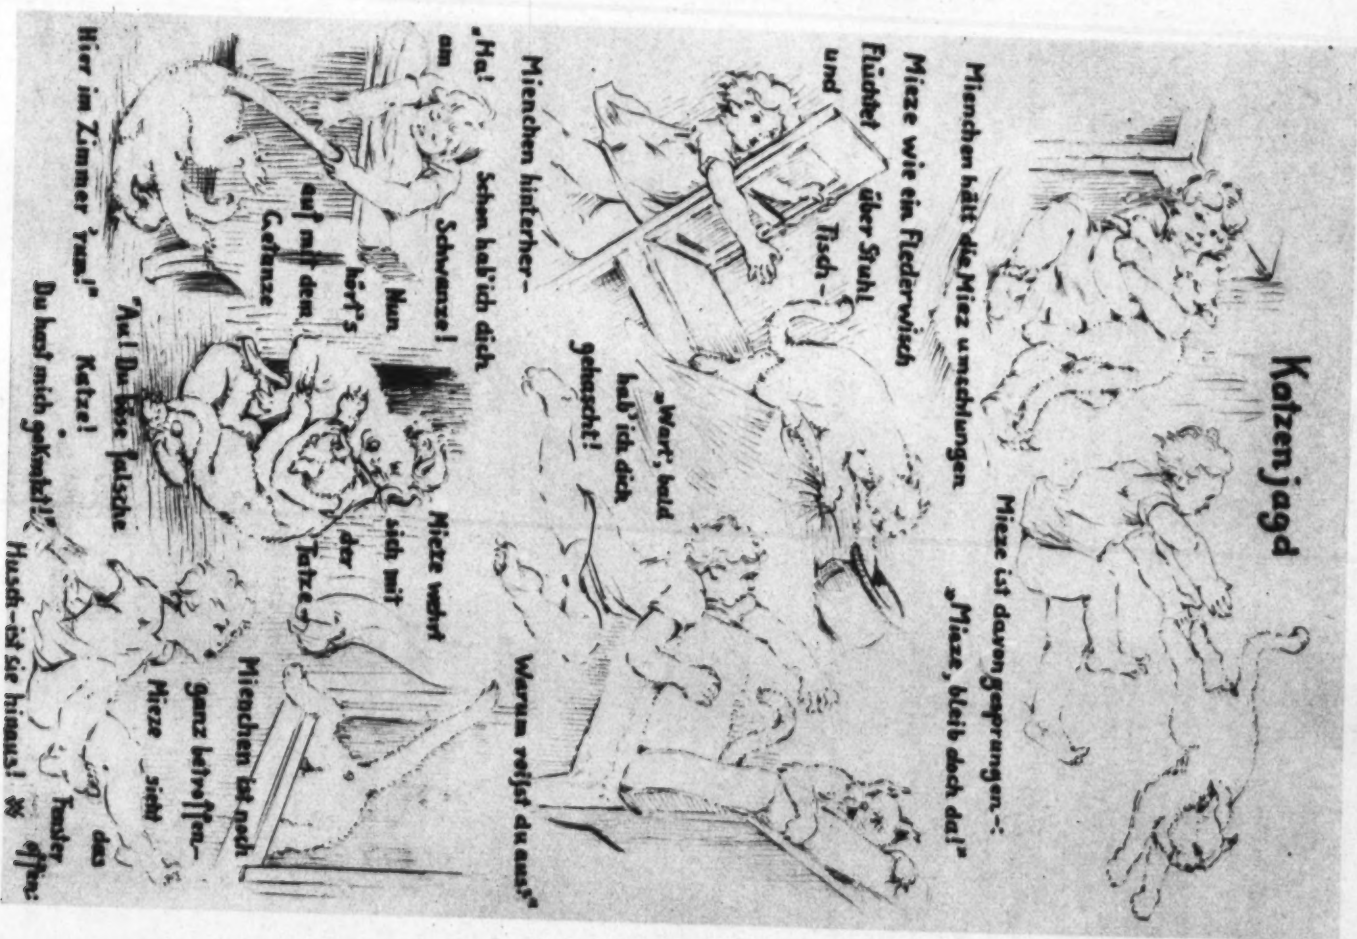 Katzenjagd
Mienchen hält die Miez umschlungen
Mieze ist davongesprungen.—:
„Mieze, bleib doch da!"
Mieze wie ein Flederwisch
Flüchtet über Stuhl
und Tisch—
Mienchen hinterher—
„Wart', bald
hab' ich dich
gehascht!
Warum reißt du aus?"
„Ha! Schon hab' ich dich
am Schwanze!
Nun
hört's
auf mit dem
Getanze
Hier im Zimmer 'rum!"
Mieze wehrt
sich mit
der
Tatze—
"Au! Du böse falsche
Katze!
Du hast mich gekratzt!"
Mienchen ist noch
ganz betroffen—
Mieze sieht das
Fenster offen:
Husch—ist sie hinaus!